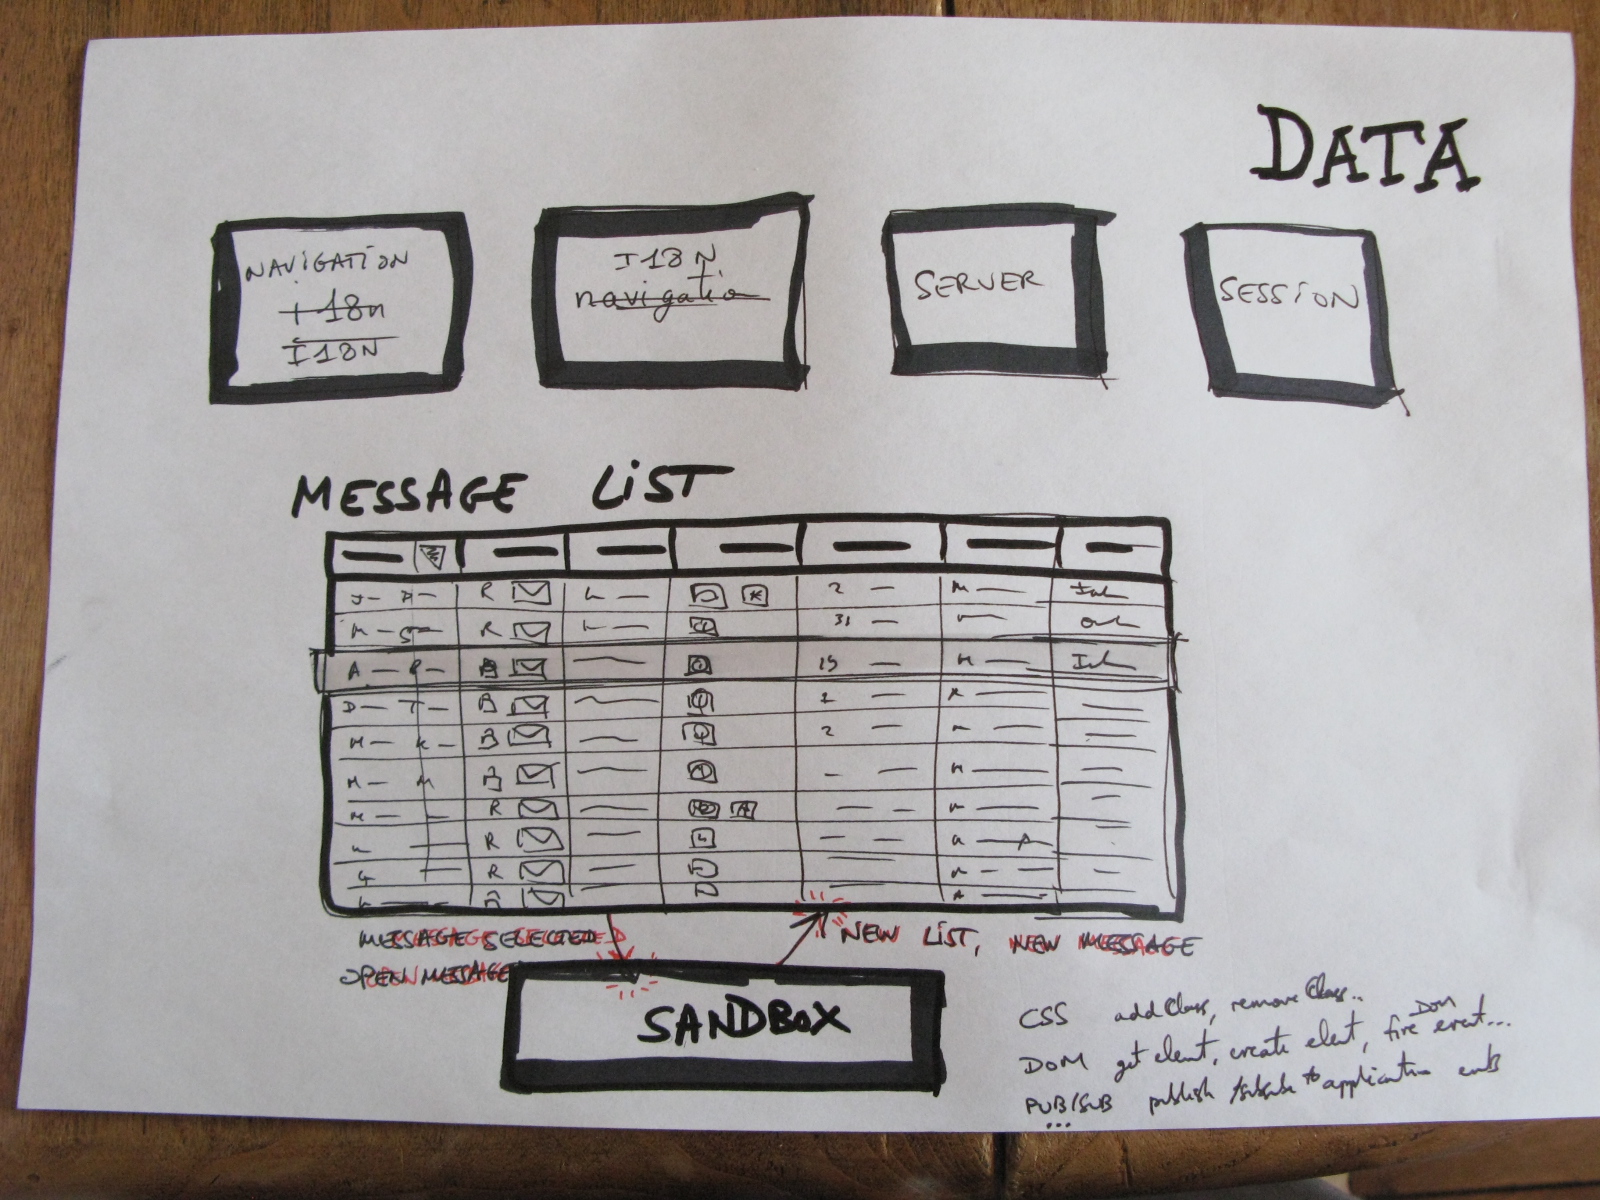 DATA
NAVIGATION
+18n
I18N
I18N
navigatio
SERVER
SESSION
MESSAGE LIST
J D R 2 M
M S R 31
A P B 15 M
D T B 1
M K B 2 m
M M B m
m R m
R
R
MESSAGE SELECTED
OPEN MESSAGE
NEW LIST, NEW MESSAGE
SANDBOX
CSS addClass, removeClass..
DOM get elemt, create elemt, fire DOM event...
PUB/SUB publish /subscribe to application
...